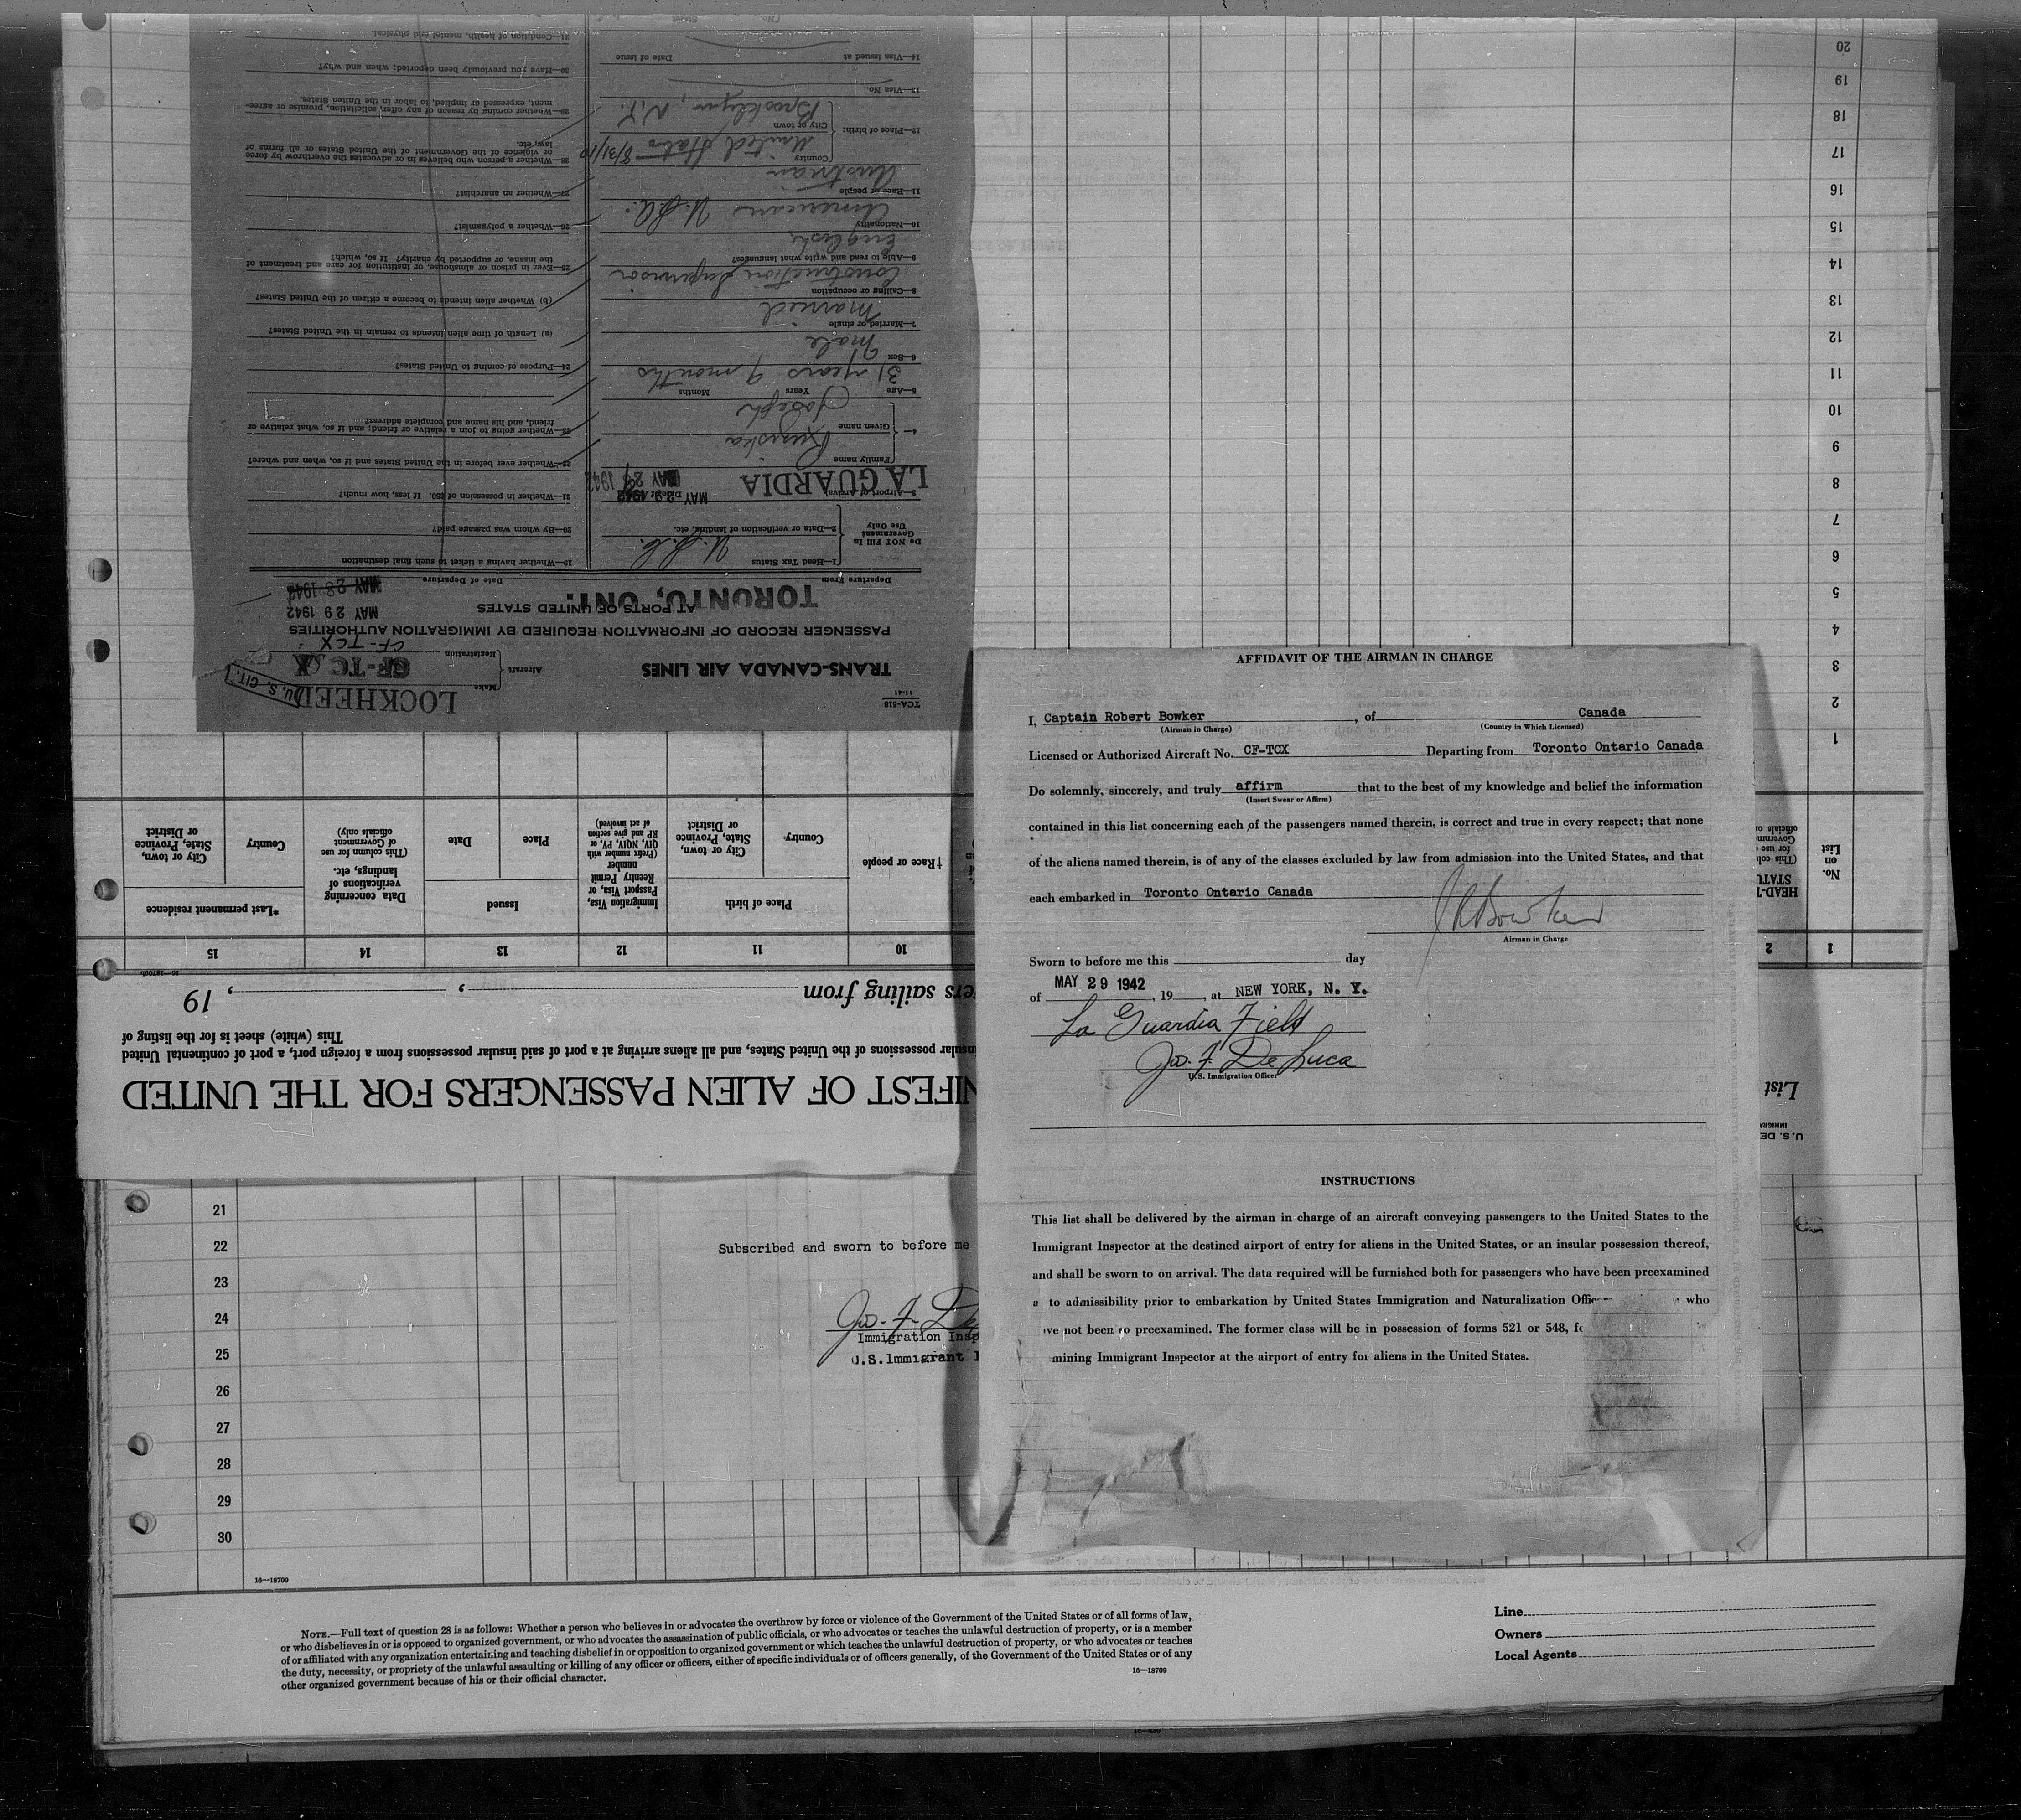 AFFIDAVIT OF THE AIRMAN IN CHARGE
I, Captain Robert Bowker, of Canada
(Airman in Charge) (Country in Which Licensed)
Licensed or Authorized Aircraft No. CF-TCX Departing from Toronto Ontario Canada
Do solemnly, sincerely, and truly affirm that to the best of my knowledge and belief the information
(Insert Swear or Affirm)
contained in this list concerning each of the passengers named therein, is correct and true in every respect; that none
of the aliens named therein, is of any of the classes excluded by law from admission into the United States, and that
each embarked in Toronto Ontario Canada
JRBowker
Airman in Charge
Sworn to before me this day
of MAY 29 1942, 19 , at NEW YORK, N. Y.
La Guardia Field
Jos. F. De Luca
U.S. Immigration Officer
INSTRUCTIONS
This list shall be delivered by the airman in charge of an aircraft conveying passengers to the United States to the
Immigrant Inspector at the destined airport of entry for aliens in the United States, or an insular possession thereof,
and shall be sworn to on arrival. The data required will be furnished both for passengers who have been preexamined
to admissibility prior to embarkation by United States Immigration and Naturalization who
ve not been so preexamined. The former class will be in possession of forms 521 or 548, fo
mining Immigrant Inspector at the airport of entry for aliens in the United States.
TCA-518
11-41
TRANS-CANADA AIR LINES
Aircraft
Make LOCKHEED
Registration CF-TCX
CF-TCX
U. S. CIT.
PASSENGER RECORD OF INFORMATION REQUIRED BY IMMIGRATION AUTHORITIES
AT PORTS OF UNITED STATES
MAY 29 1942
Departure From TORONTO, ONT. Date of Departure MAY 28 1942
Do NOT Fill In
Government
Use Only
1—Head Tax Status U.S.C.
2—Data or verification of landing, etc.
3—Airport of Arrival LA GUARDIA MAY 29 1942
MAY 29 1942
4—
Family name Ruziska
Given name Joseph
5—Age Years Months
31 years 9 months
6—Sex Male
7—Married or single Married
8—Calling or occupation Construction Supervisor
9—Able to read and write what languages?
English
10—Nationality American U.S.A.
11—Race or people Austrian
12—Place of birth:
Country United States 8/31/10
City or town Brooklyn, N.Y.
13—Visa No.
14—Visa issued at Date of issue
19—Whether having a ticket to such final destination
20—By whom was passage paid?
21—Whether in possession of $50. If less, how much?
22—Whether ever before in the United States and if so, when and where?
23—Whether going to join a relative or friend; and if so, what relative or
friend, and his name and complete address?
24—Purpose of coming to United States?
(a) Length of time alien intends to remain in the United States?
(b) Whether alien intends to become a citizen of the United States?
25—Ever in prison or almshouse, or institution for care and treatment of
the insane, or supported by charity? If so, which?
26—Whether a polygamist?
27—Whether an anarchist?
28—Whether a person who believes in or advocates the overthrow by force
or violence of the Government of the United States or all forms of
law, etc.
29—Whether coming by reason of any offer, solicitation, promise or agree-
ment, expressed or implied, to labor in the United States.
30—Have you previously been deported; when and why?
31—Condition of health, mental and physical.
U.S. DE
IMMIGRA
List
NIFEST OF ALIEN PASSENGERS FOR THE UNITED
insular possessions of the United States, and all aliens arriving at a port of said insular possessions from a foreign port, a port of continental United
This (white) sheet is for the listing of
ers sailing from , , 19
16—18709b
1 2 10 11 12 13 14 15
No.
on
List
HEAD-T
STATU
(This colu
for use o
Governm
officials o
†Race or people
Place of birth
Country
City or town,
State, Province
or District
Immigration Visa,
Passport Visa, or
Reentry Permit
number
(Prefix number with
QIV, NQIV, PV, or
RP and give section
of act involved)
Issued
Place
Date
Data concerning
verifications of
landings, etc.
(This column for use
of Government
officials only)
*Last permanent residence
Country
City or town,
State, Province
or District
1
2
3
4
5
6
7
8
9
10
11
12
13
14
15
16
17
18
19
20
Subscribed and sworn to before me
Jos. F. De
Immigration Insp
U.S.Immigrant I
21
22
23
24
25
26
27
28
29
30
16—18709
NOTE.—Full text of question 28 is as follows: Whether a person who believes in or advocates the overthrow by force or violence of the Government of the United States or of all forms of law,
or who disbelieves in or is opposed to organized government, or who advocates the assassination of public officials, or who advocates or teaches the unlawful destruction of property, or is a member
of or affiliated with any organization entertaining and teaching disbelief in or opposition to organized government or which teaches the unlawful destruction of property, or who advocates or teaches
the duty, necessity, or propriety of the unlawful assaulting or killing of any officer or officers, either of specific individuals or of officers generally, of the Government of the United States or of any
other organized government because of his or their official character.
16—18709
Line
Owners
Local Agents